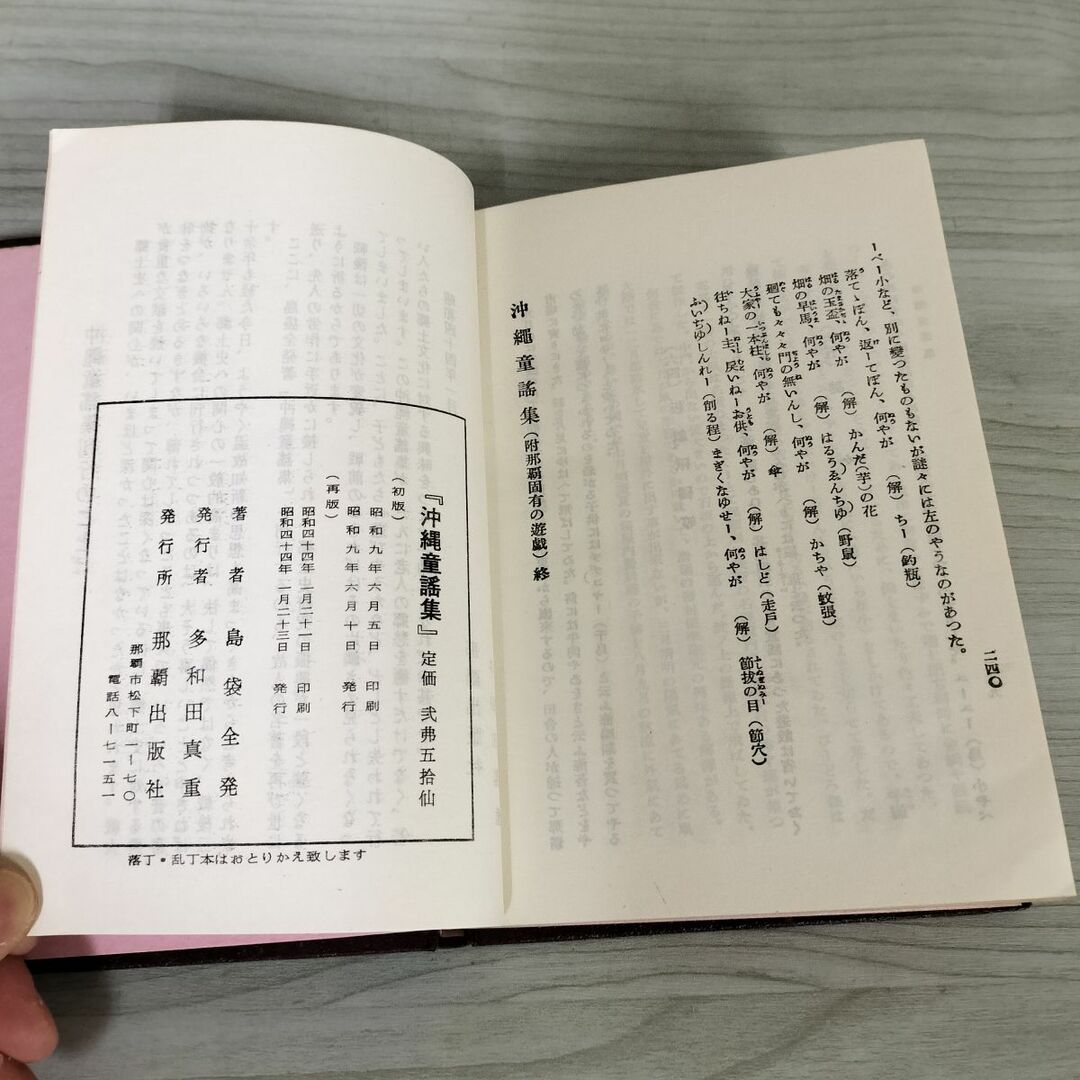 ーペー小など、別に變つたものもないが謎々には左のやうなのがあつた。
落てゝぽん、返ーてぽん、何やが (解) ちー(釣瓶)
畑の玉盃、何やが (解) かんだ(芋)の花
畑の早馬、何やが (解) はるうゑんちゆ(野鼠)
廻ても々々々門の無いんし、何やが (解) かちや(蚊張)
大家の一本柱、何やが (解) 傘
往ちねー主、戻いねーお供、何やが (解) はしど(走戸)
ふいぢゆしんれー(削る程)まぎくなゆせー、何やが (解) 節拔の目(節穴)
沖繩童謠集(附那覇固有の遊戯)終
二四〇
『沖縄童謡集』 定価 弐弗五拾仙
(初版) 昭和九年六月五日 印刷
昭和九年六月十日 発行
(再版) 昭和四十四年一月二十一日 印刷
昭和四十四年一月二十三日 発行
著者 島袋全発
発行者 多和田真重
発行所 那覇出版社
那覇市松下町一ー七〇
電話八ー七一五一
落丁・乱丁本はおとりかえ致します